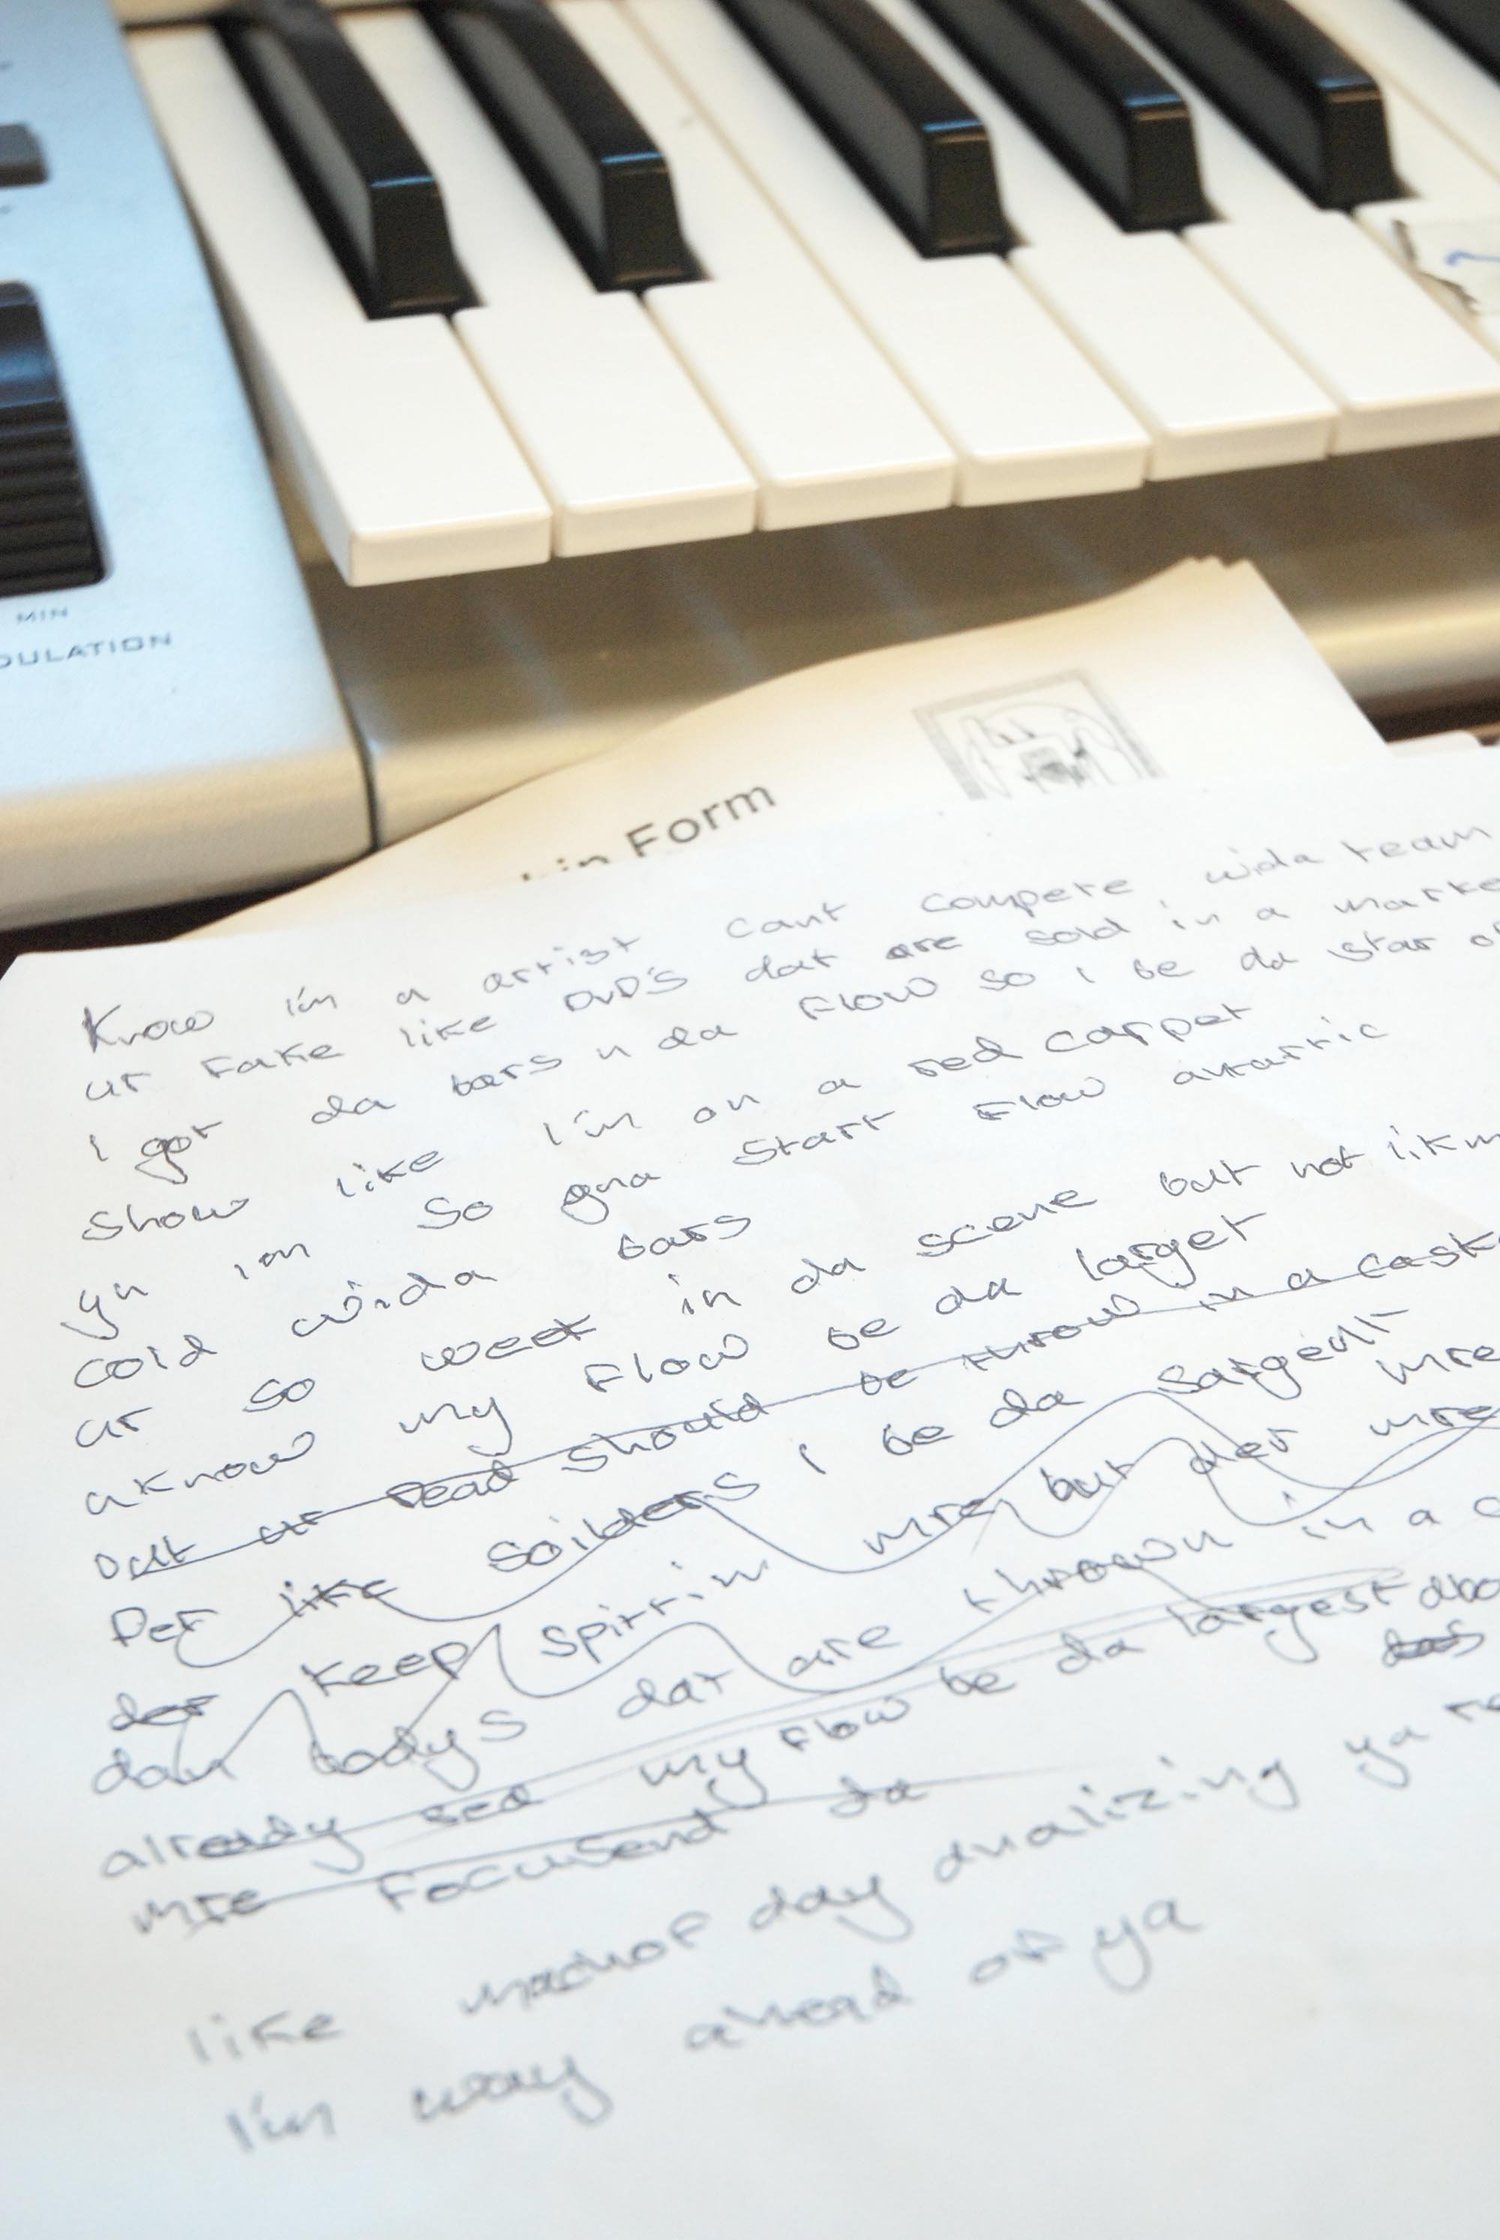 MIN
DULATION
Form
Know i'm a artist cant compete wida team
ur fake like DVD'S dat are sold in a marke
I got da bars n da flow so i be da star of
show like I'm on a red carpet
yh im so gna start flow antartic
cold wida bars
ur so week in da scene but not likm
aknow my flow be da larget
but ur head should be throw in a cask
Def like soilders I be da sargent
der keep spittin mre but der mre mre
dan bodys dat are thrown in a c
already sed my flow be da largest abo
mre focusend da
like day analizing ya re
I'm way ahead of ya